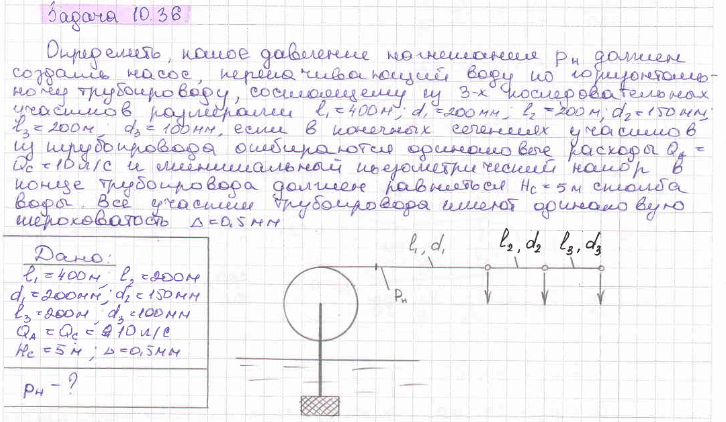 Задача 10.36
Определить, какое давление нагнетания pн должен
создать насос, перекачивающий воду по горизонталь-
ному трубопроводу, состоящему из 3-х последовательных
участков размерами l₁=400м; d₁=200мм; l₂=200м; d₂=150мм;
l₃=200м; d₃=100мм, если в конечных сечениях участков
из трубопровода отбираются одинаковые расходы QA =
QC=10л/с и минимальный пьезометрический напор в
конце трубопровода должен равняться HC=5м столба
воды. Все участки трубопровода имеют одинаковую
шероховатость Δ=0,5мм
Дано:
l₁=400м; l₂=200м
d₁=200мм; d₂=150мм
l₃=200м; d₃=100мм
QA=QC=10л/с
HC=5м; Δ=0,5мм
pн-?
l₁, d₁
l₂, d₂
l₃, d₃
pн